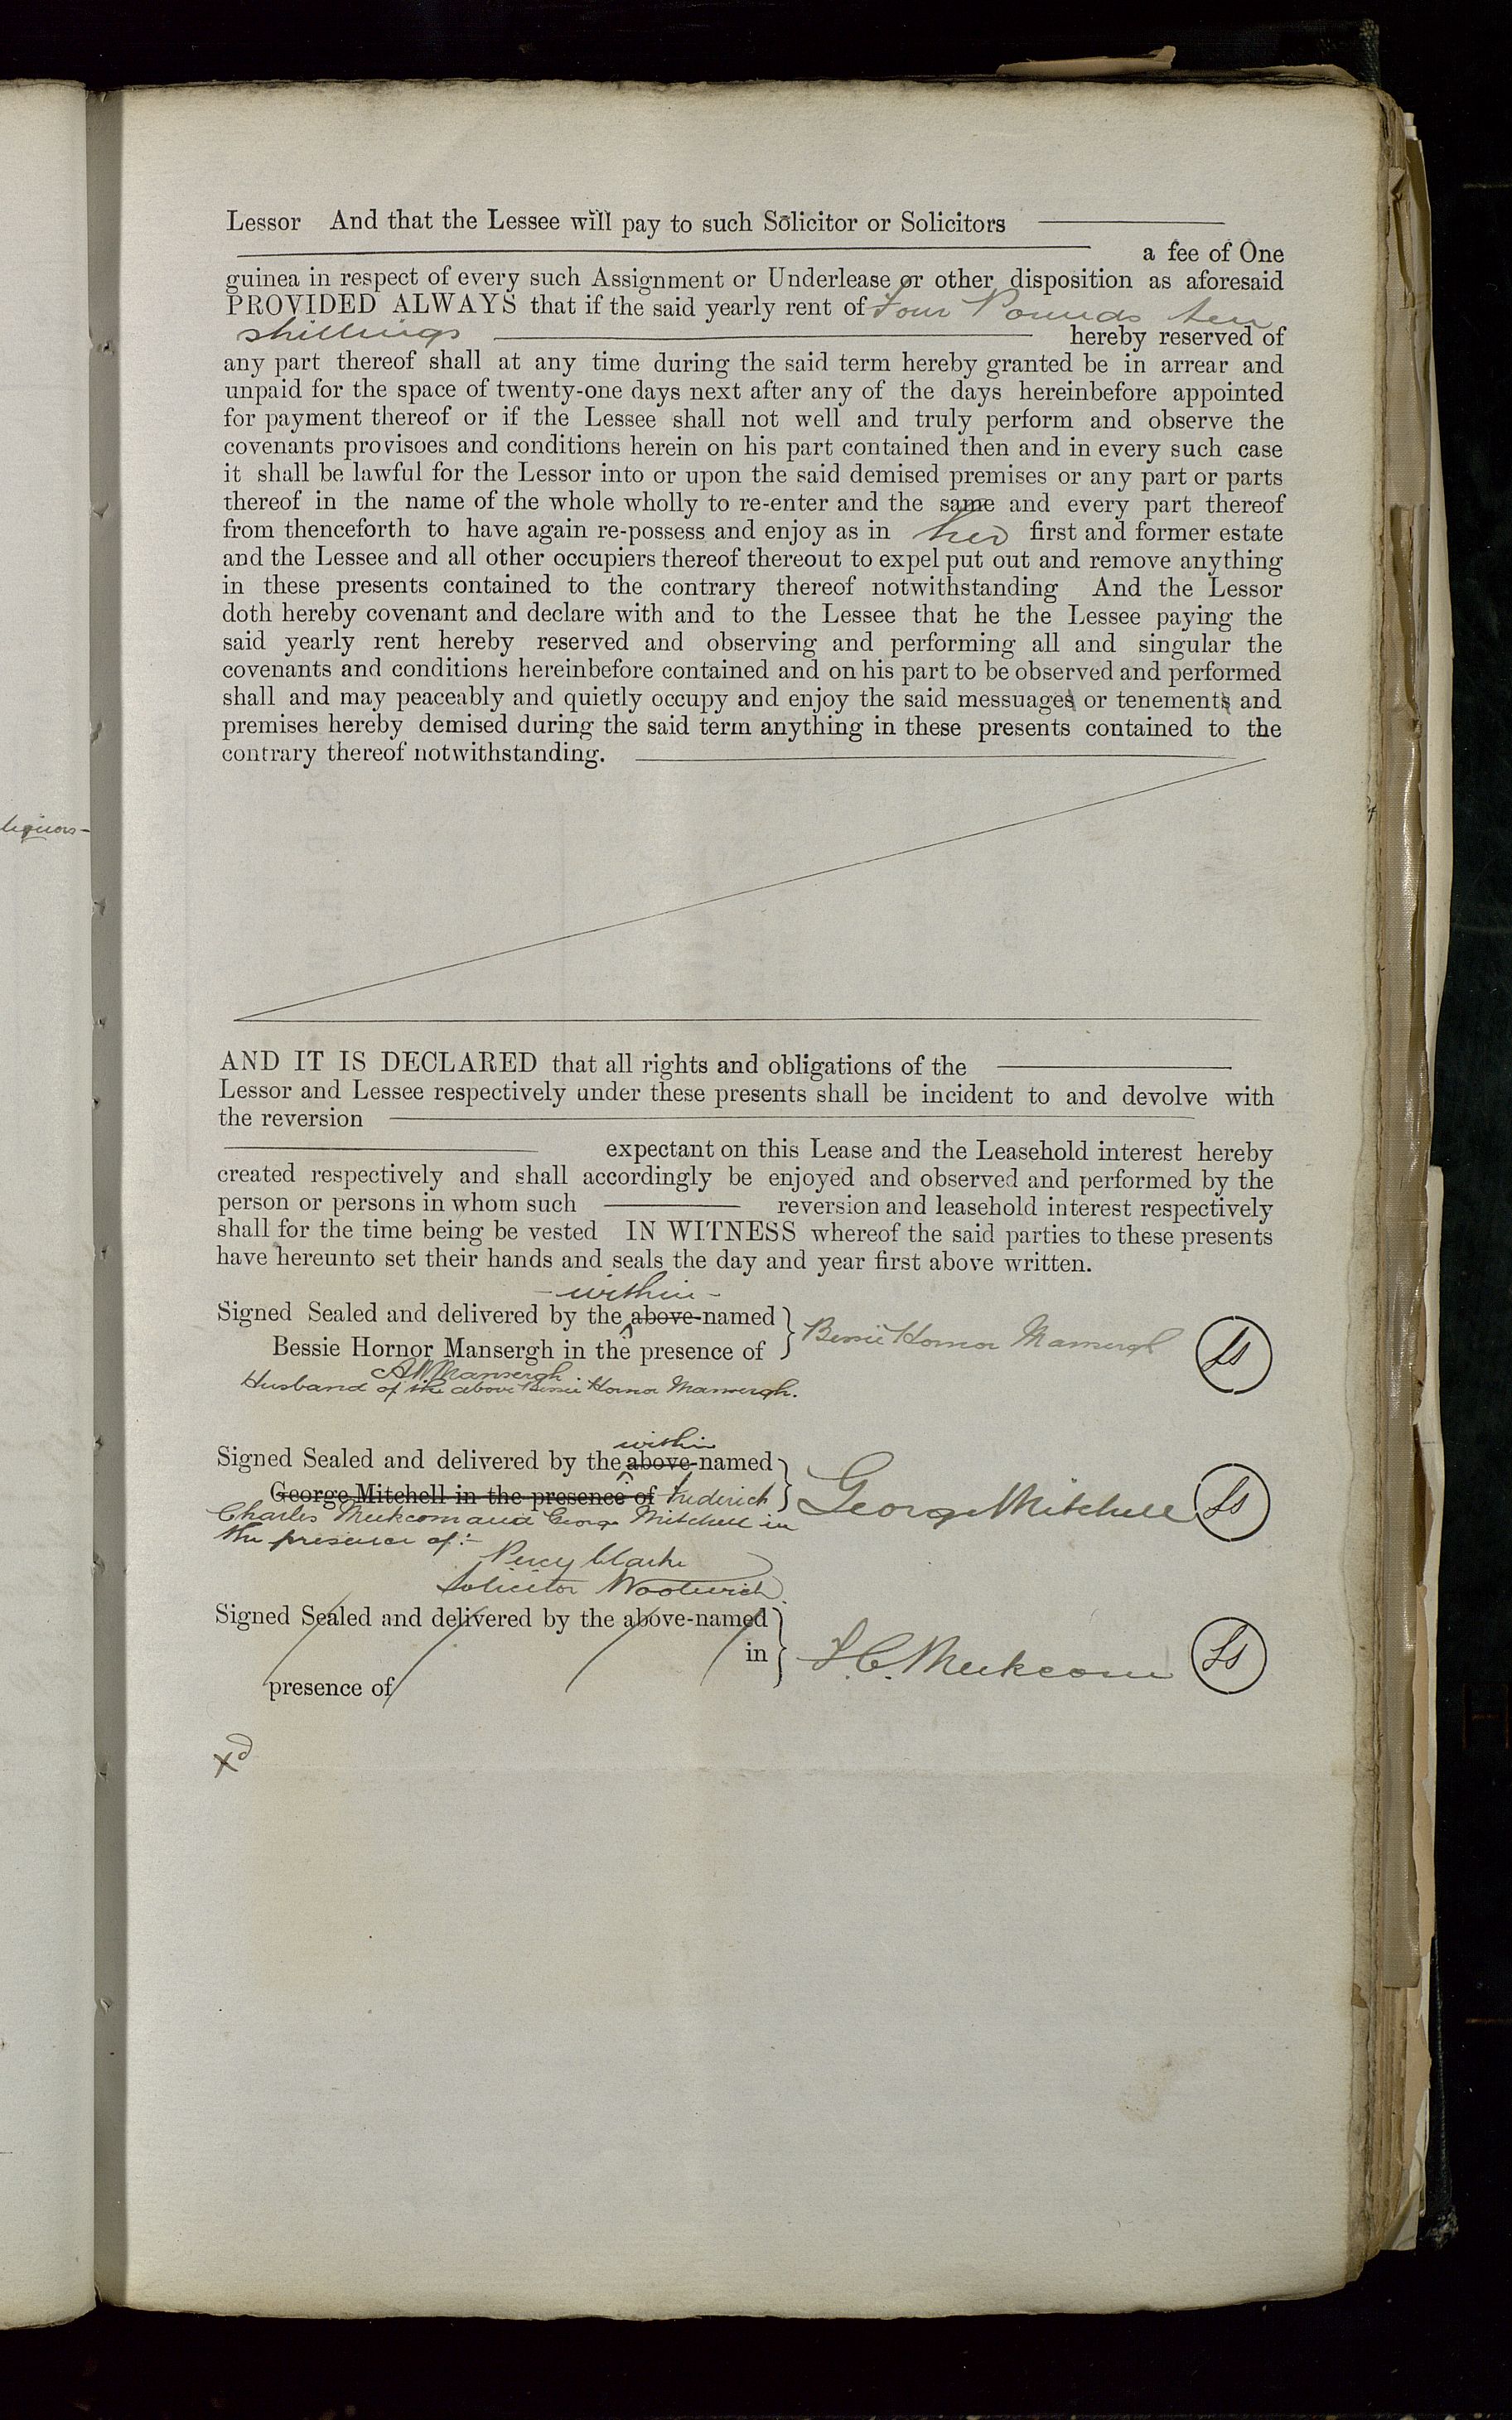 Lessor And that the Lessee will pay to such Solicitor or Solicitors
a fee of One
guinea in respect of every such Assignment or Underlease or other disposition as aforesaid
PROVIDED ALWAYS that if the said yearly rent of Four Pounds ten
shillings hereby reserved of
any part thereof shall at any time during the said term hereby granted be in arrear and
unpaid for the space of twenty-one days next after any of the days hereinbefore appointed
for payment thereof or if the Lessee shall not well and truly perform and observe the
covenants provisoes and conditions herein on his part contained then and in every such case
it shall be lawful for the Lessor into or upon the said demised premises or any part or parts
thereof in the name of the whole wholly to re-enter and the same and every part thereof
from thenceforth to have again re-possess and enjoy as in her first and former estate
and the Lessee and all other occupiers thereof thereout to expel put out and remove anything
in these presents contained to the contrary thereof notwithstanding And the Lessor
doth hereby covenant and declare with and to the Lessee that he the Lessee paying the
said yearly rent hereby reserved and observing and performing all and singular the
covenants and conditions hereinbefore contained and on his part to be observed and performed
shall and may peaceably and quietly occupy and enjoy the said messuages or tenements and
premises hereby demised during the said term anything in these presents contained to the
contrary thereof notwithstanding.
liquors-
AND IT IS DECLARED that all rights and obligations of the
Lessor and Lessee respectively under these presents shall be incident to and devolve with
the reversion
expectant on this Lease and the Leasehold interest hereby
created respectively and shall accordingly be enjoyed and observed and performed by the
person or persons in whom such reversion and leasehold interest respectively
shall for the time being be vested IN WITNESS whereof the said parties to these presents
have hereunto set their hands and seals the day and year first above written.
- within -
Signed Sealed and delivered by the above-named
Bessie Hornor Mansergh in the presence of } Bessie Hornor Mansergh LS
A W Mansergh
Husband of the above Bessie Hornor Mansergh.
within
Signed Sealed and delivered by the above-named
George Mitchell in the presence of Frederick } George Mitchell LS
Charles Meekcom and George Mitchell in
the presence of :-
Percy Clarke
Solicitor Woolwich
Signed Sealed and delivered by the above-named
in } F. C. Meekcom LS
presence of
xd